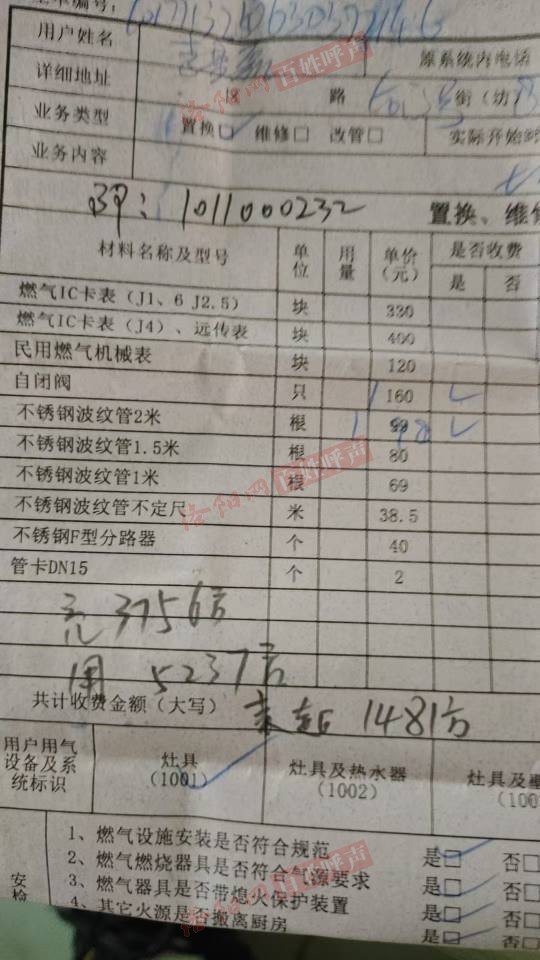 用户姓名
原系统内电话
详细地址 路 街（坊）
业务类型 置换□ 维修□ 改管□ 实际开始
业务内容
1011000232 置换、维
材料名称及型号 单位 用量 单价（元） 是否收费 是 否
燃气IC卡表（J1、6 J2.5） 块 330
燃气IC卡表（J4）、远传表 块 400
民用燃气机械表 块 120
自闭阀 只 1 160 ✓
不锈钢波纹管2米 根 1 99 ✓
不锈钢波纹管1.5米 根 80
不锈钢波纹管1米 根 69
不锈钢波纹管不定尺 米 38.5
不锈钢F型分路器 个 40
管卡DN15 个 2
充3756方
用 5237方
共计收费金额（大写） 1481方
用户用气设备及系统标识 灶具（1001） ✓ 灶具及热水器（1002） 灶具及
安检
1、燃气设施安装是否符合规范 是□ 否□
2、燃气燃烧器具是否符合气源要求 是□ 否□
3、燃气器具是否带熄火保护装置 是□ 否□
4、其它火源是否搬离厨房 是□ 否□
洛阳网 百姓呼声
洛阳网 百姓呼声
洛阳网 百姓呼声